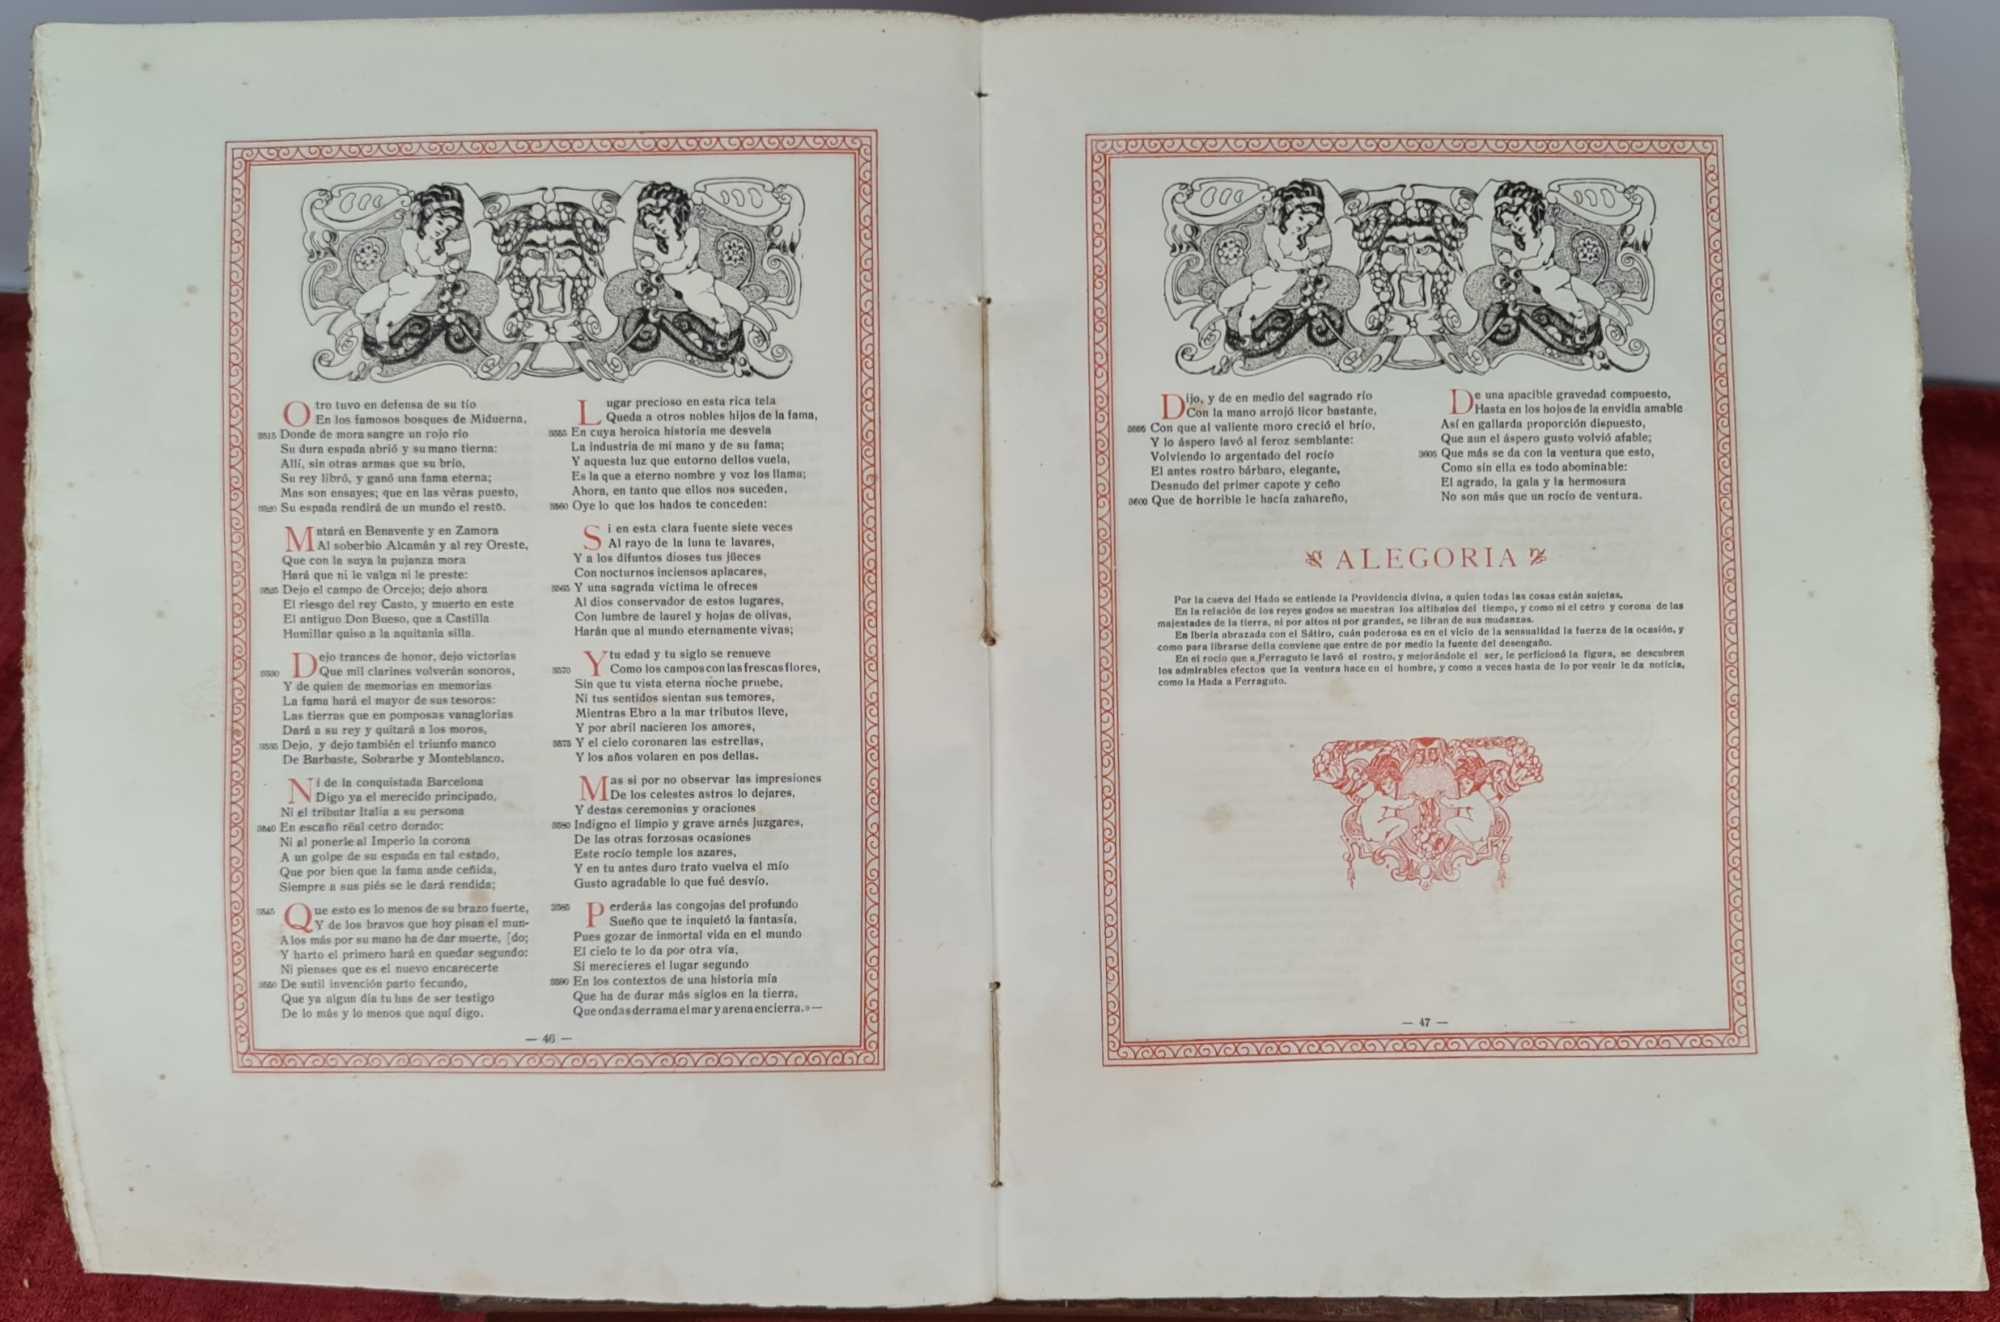 Otro tuvo en defensa de su tío
En los famosos bosques de Miduerna,
3515 Donde de mora sangre un rojo río
Su dura espada abrió y su mano tierna:
Allí, sin otras armas que su brío,
Su rey libró, y ganó una fama eterna;
Mas son ensayes; que en las véras puesto,
3520 Su espada rendirá de un mundo el resto.
Matará en Benavente y en Zamora
Al soberbio Alcamán y al rey Oreste,
Que con la suya la pujanza mora
Hará que ni le valga ni le preste:
3525 Dejo el campo de Orcejo; dejo ahora
El riesgo del rey Casto, y muerto en este
El antiguo Don Bueso, que a Castilla
Humillar quiso a la aquitania silla.
Dejo trances de honor, dejo victorias
3530 Que mil clarines volverán sonoros,
Y de quien de memorias en memorias
La fama hará el mayor de sus tesoros:
Las tierras que en pomposas vanaglorias
Dará a su rey y quitará a los moros,
3535 Dejo, y dejo también el triunfo manco
De Barbaste, Sobrarbe y Monteblanco.
Ni de la conquistada Barcelona
Digo ya el merecido principado,
Ni el tributar Italia a su persona
3540 En escaño rëal cetro dorado:
Ni al ponerle al Imperio la corona
A un golpe de su espada en tal estado,
Que por bien que la fama ande ceñida,
Siempre a sus piés se le dará rendida;
3545 Que esto es lo menos de su brazo fuerte,
Y de los bravos que hoy pisan el mun-
A los más por su mano ha de dar muerte, [do;
Y harto el primero hará en quedar segundo:
Ni pienses que es el nuevo encarecerte
3550 De sutil invención parto fecundo,
Que ya algun día tu has de ser testigo
De lo más y lo menos que aquí digo.
Lugar precioso en esta rica tela
Queda a otros nobles hijos de la fama,
3555 En cuya heroica historia me desvela
La industria de mi mano y de su fama;
Y aquesta luz que entorno dellos vuela,
Es la que a eterno nombre y voz los llama;
Ahora, en tanto que ellos nos suceden,
3560 Oye lo que los hados te conceden:
Si en esta clara fuente siete veces
Al rayo de la luna te lavares,
Y a los difuntos dioses tus jüeces
Con nocturnos inciensos aplacares,
3565 Y una sagrada víctima le ofreces
Al dios conservador de estos lugares,
Con lumbre de laurel y hojas de olivas,
Harán que al mundo eternamente vivas;
Y tu edad y tu siglo se renueve
3570 Como los campos con las frescas flores,
Sin que tu vista eterna noche pruebe,
Ni tus sentidos sientan sus temores,
Mientras Ebro a la mar tributos lleve,
Y por abril nacieren los amores,
3575 Y el cielo coronaren las estrellas,
Y los años volaren en pos dellas.
Mas si por no observar las impresiones
De los celestes astros lo dejares,
Y destas ceremonias y oraciones
3580 Indigno el limpio y grave arnés juzgares,
De las otras forzosas ocasiones
Este rocío temple los azares,
Y en tu antes duro trato vuelva el mío
Gusto agradable lo que fué desvío.
3585 Perderás las congojas del profundo
Sueño que te inquietó la fantasía,
Pues gozar de inmortal vida en el mundo
El cielo te lo da por otra vía,
Si merecieres el lugar segundo
3590 En los contextos de una historia mía
Que ha de durar más siglos en la tierra,
Que ondas derrama el mar y arena encierra.»—
— 46 —
Dijo, y de en medio del sagrado río
Con la mano arrojó licor bastante,
3595 Con que al valiente moro creció el brío,
Y lo áspero lavó al feroz semblante:
Volviendo lo argentado del rocío
El antes rostro bárbaro, elegante,
Desnudo del primer capote y ceño
3600 Que de horrible le hacía zahareño,
De una apacible gravedad compuesto,
Hasta en los hojos de la envidia amable
Así en gallarda proporción dispuesto,
Que aun el áspero gusto volvió afable;
3605 Que más se da con la ventura que esto,
Como sin ella es todo abominable:
El agrado, la gala y la hermosura
No son más que un rocío de ventura.
ALEGORIA
Por la cueva del Hado se entiende la Providencia divina, a quien todas las cosas están sujetas.
En la relación de los reyes godos se muestran los altibajos del tiempo, y como ni el cetro y corona de las
majestades de la tierra, ni por altos ni por grandes, se libran de sus mudanzas.
En Iberia abrazada con el Sátiro, cuán poderosa es en el vicio de la sensualidad la fuerza de la ocasión, y
como para librarse della conviene que entre de por medio la fuente del desengaño.
En el rocío que a Ferraguto le lavó el rostro, y mejorándole el ser, le perficionó la figura, se descubren
los admirables efectos que la ventura hace en el hombre, y como a veces hasta de lo por venir le da noticia,
como la Hada a Ferraguto.
— 47 —